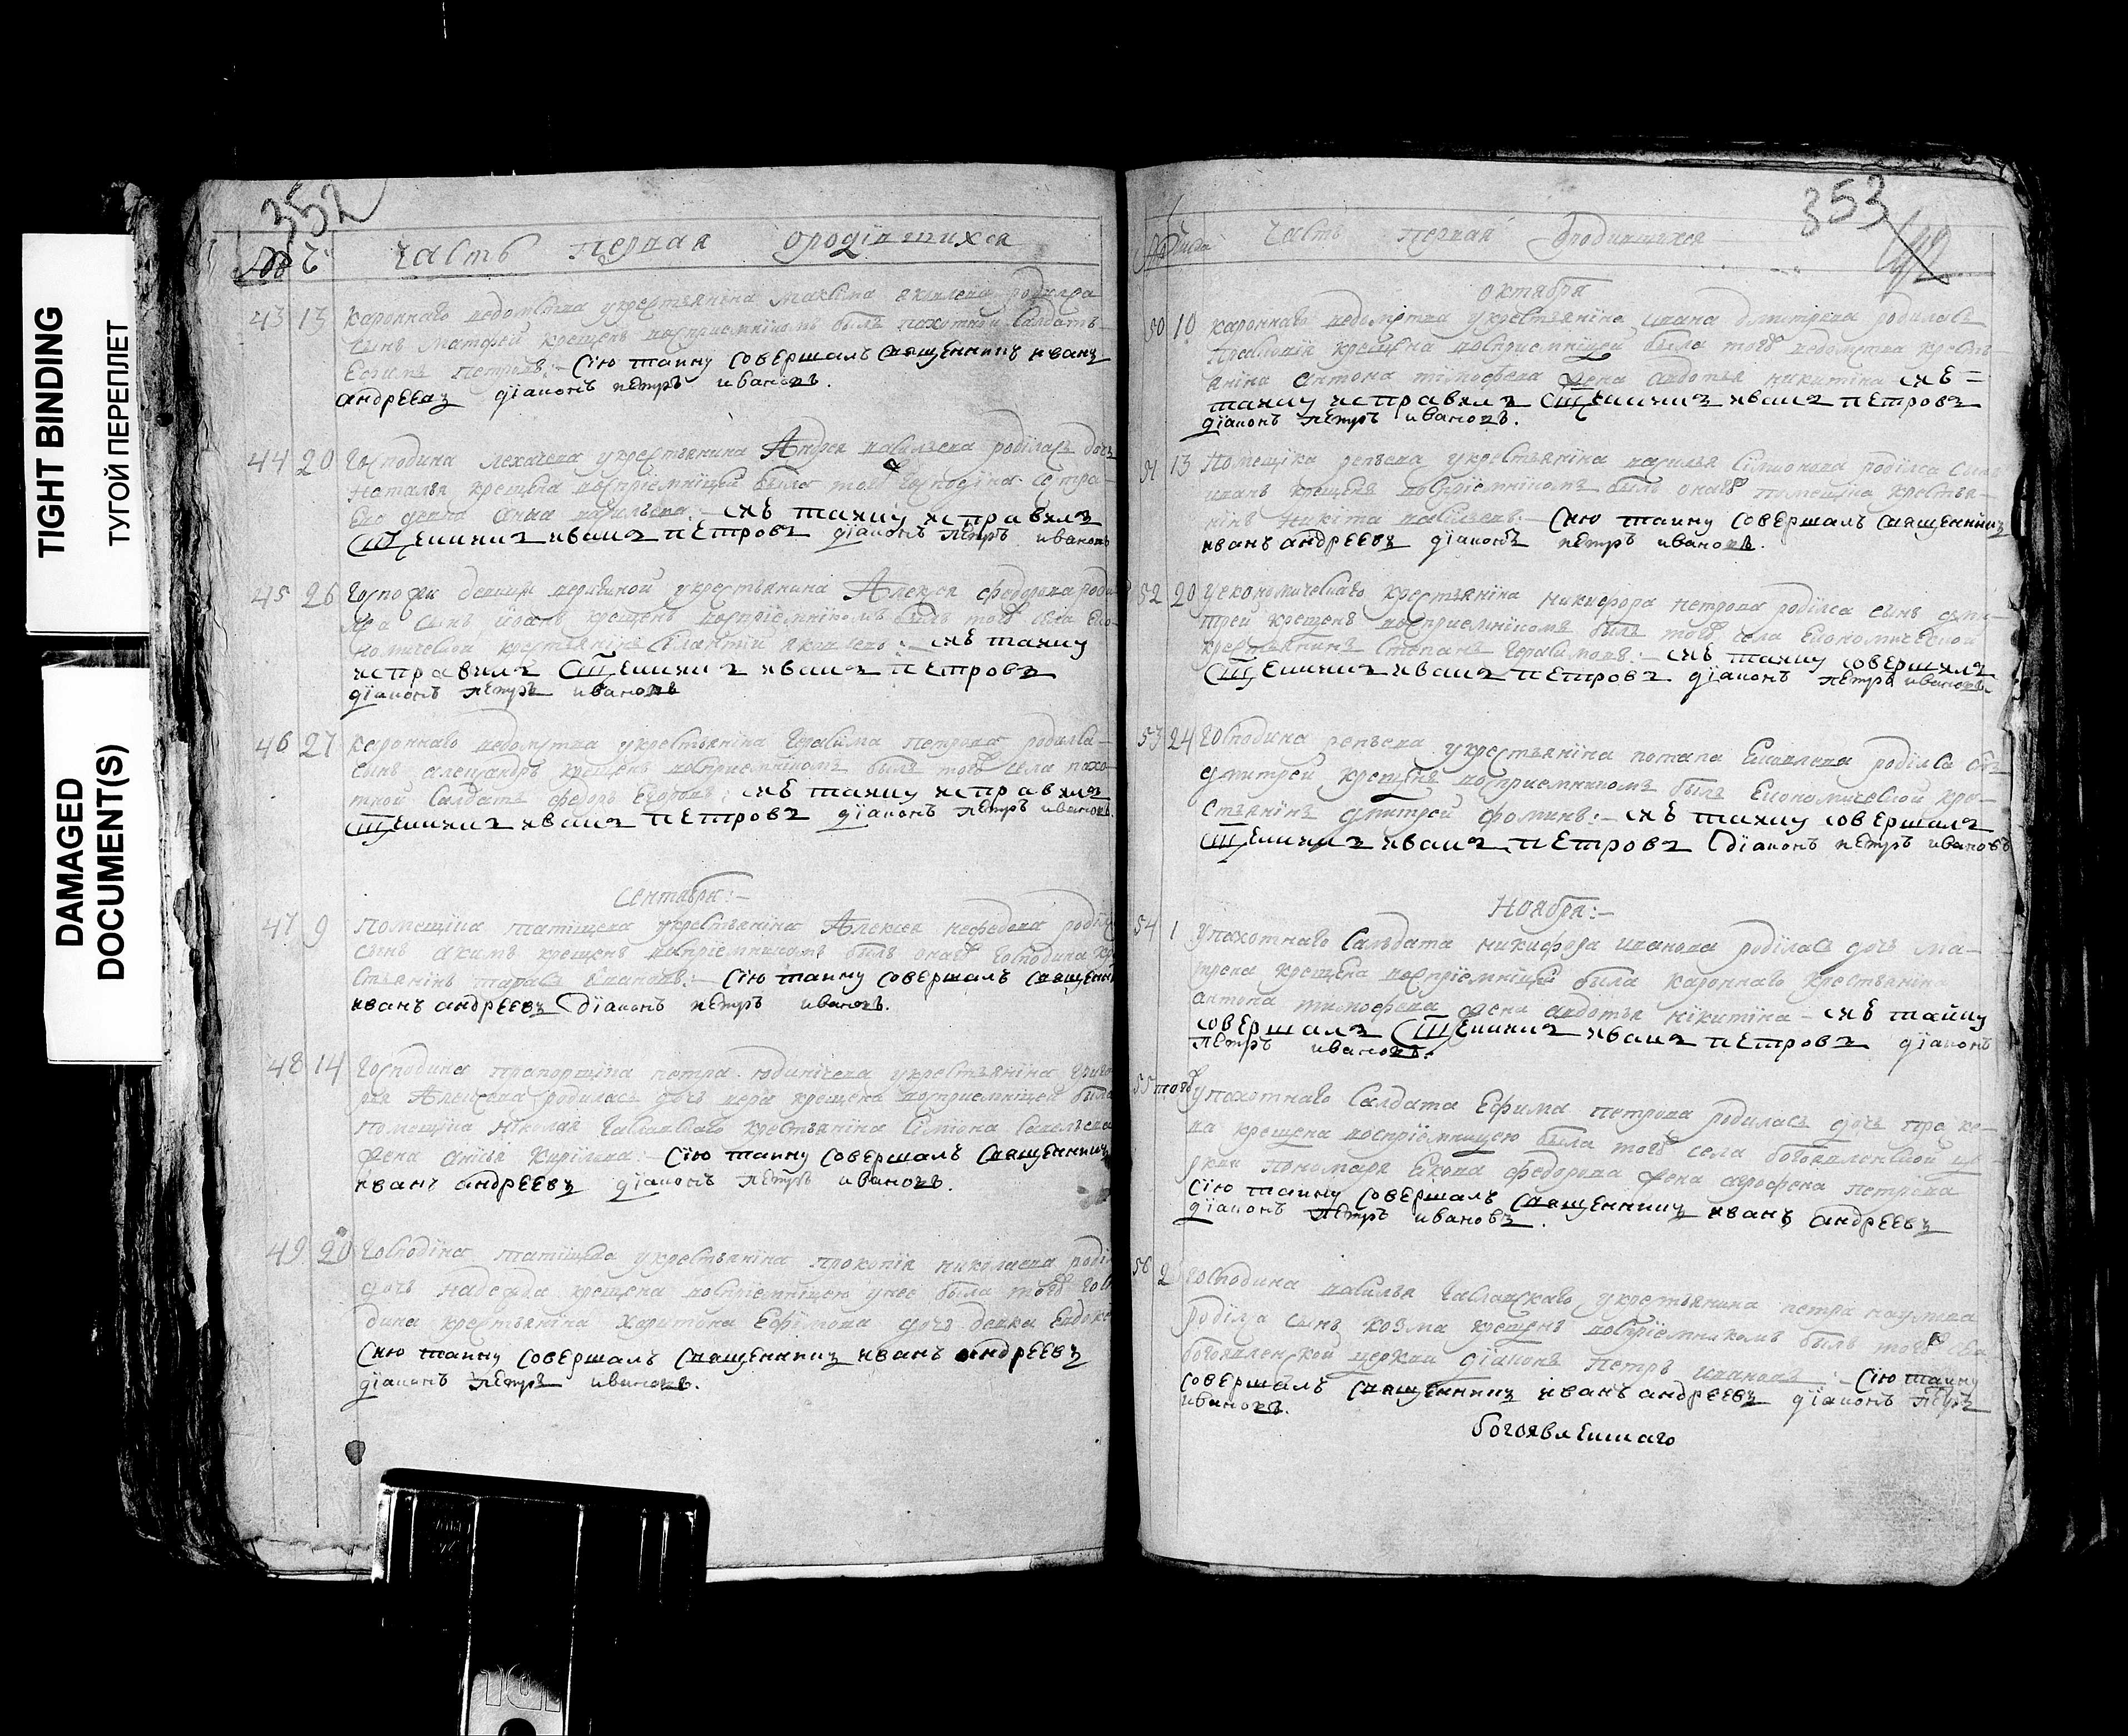 TIGHT BINDING
ТУГОЙ ПЕРЕПЛЕТ
DAMAGED
DOCUMENT(S)
352
Часть первая ородiвшихся
43 13 кароннаго ведомства укрестьянiна максiма яковлева родился
сынъ матфей крещенъ восприемнiкомъ былъ пахотной салдатъ
Ефимъ петровъ:- Сiю таину совершалъ священникъ иванъ
андреевъ дiаконъ петръ ивановъ.
44 20 Господина лехачева укрестьянина Андрея васильева родiлась дочь
наталья крещена восприемнiцей была того господiна сестра
его девка анна васильева:- сию таину исправилъ
Священникъ иванъ петровъ дiаконъ петръ ивановъ
45 26 Госпожи укрестьянина Алексея федорова роди
лся сынъ крещенъ восприемнiкомъ былъ того села Еко
номической крестьянiнъ яковлевъ:- сию таину
исправилъ Священникъ иванъ петровъ
дiаконъ петръ ивановъ
46 27 кароннаго ведомства укрестьянiна Герасима петрова родилса
сынъ александръ крещенъ восприемнiкомъ былъ того села пахо
тной Салдатъ федоръ Егоровъ: сию таину исправилъ
Священникъ иванъ петровъ дiаконъ петръ ивановъ.
Сентября:-
47 9 помещiка татищева укрестьянiна Алексея нефедева родiлс
сынъ акимъ крещенъ восприемникомъ былъ онаго господина кре
стьянiнъ тарасъ:- Сiю таину совершалъ священн
иванъ андреевъ дiаконъ петръ ивановъ.
48 14 Господина прапорщiка петра юдинiчева укрестьянiна Григо
рья Алексеева родилась дочь вера крещена восприемницей была
помещiка нiколая Чаславского крестьянiна Симiона Савельева
жена анисiя Кирiлова:- Сiю таину совершалъ Священникъ
иванъ андреевъ дiаконъ петръ ивановъ.
49 20 Господiна татiщева укрестьянiна прокопiя николаева родiл
дочь надежда крещена восприемнiцею унее была того госп
дина крестьянiна Харитона Ефiмова дочь девка Евдоке
Сию таину Совершалъ Священникъ иванъ андреевъ
дiаконъ петръ ивановъ.
353
Числа Часть первая ородившихся
Октября
50 10 кароннаго ведомства укрестьянiна ивана дмитрева родилась
крещена восприемнiцей была того ведомства кресть
янiна антона тiмофева жена авдотья никитина сию
таину исправилъ Священникъ иванъ петровъ
дiаконъ петръ ивановъ.
51 13 Помещiка репьева укрестьянiна василья Симионова родiлса сынъ
иванъ крещенъ восприемнiкомъ былъ онаго помещiка крестья
нiнъ Никiта васильевъ:- Сию таину совершалъ священникъ
иванъ андреевъ дiаконъ петръ ивановъ.
52 20 У економическаго крестьянiна никифора петрова родiлса сынъ дми
трей крещенъ восприемнiкомъ былъ того села Економической
крестьянинъ Степанъ Герасимовъ:- сию таину совершилъ
Священникъ иванъ петровъ дiаконъ петръ ивановъ.
53 24 Господина репьева укрестьянiна потапа Ековлева родiлса сынъ
дмитрей крещенъ восприемникомъ былъ Економической кре
стьянiнъ дмитрей фоминъ:- сию таину совершалъ
Священникъ иванъ петровъ дiаконъ петръ ивановъ
Ноября:-
54 1 Упахотнаго Салдата никифора иванова родiлась дочь ма-
трена крещена восприемнiцей была кароннаго крестьянiна
антона тимофева жена авдотья нiкитина - сию тайну
совершалъ Священникъ иванъ петровъ дiаконъ
петръ ивановъ.
55 того упахотнаго Салдата Ефима петрова родилась дочь
ва крещена восприемницею была того села богоявленской це
ркви пономаря Екова федорова жена петрова
Сiю таину Совершалъ Священникъ иванъ андреевъ
дiаконъ петръ ивановъ.
56 2 Господина василья Чаславскаго укрестьянина петра наумова
родiлся сынъ козма крещенъ восприемникомъ былъ того села
богоявленской церкви дiаконъ петръ ивановъ:- Сiю таину
совершалъ священникъ иванъ андреевъ дiаконъ петръ
ивановъ.
богоявленшаго